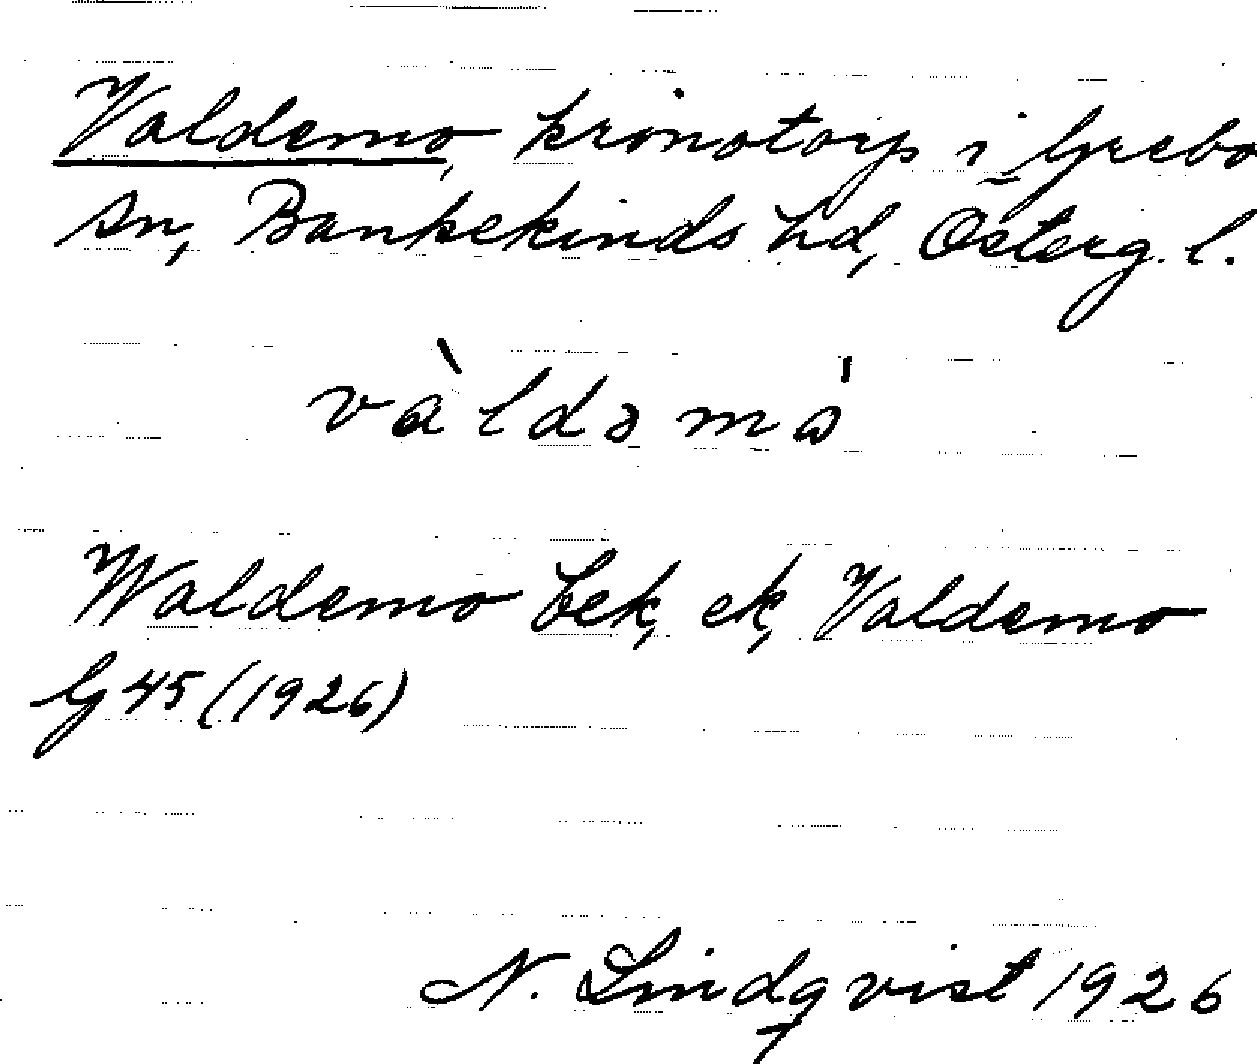 Valdemo, kronotorp i Grebo
sn, Bankekinds hd, Österg. l.
và ldə mɷ̍
Waldemo bek, ek, Valdemo
G 45 (1926)
N. Lindqvist 1926